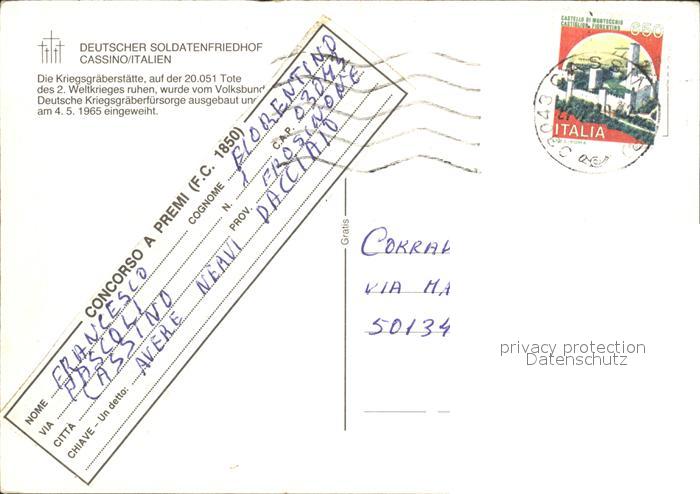 DEUTSCHER SOLDATENFRIEDHOF
CASSINO/ITALIEN
Die Kriegsgräberstätte, auf der 20.051 Tote
des 2. Weltkrieges ruhen, wurde vom Volksbund
Deutsche Kriegsgräberfürsorge ausgebaut un
am 4. 5. 1965 eingeweiht.
CONCORSO A PREMI (F.C. 1850)
NOME FRANCESCO COGNOME FIORENTINO
VIA PASCOLI N. 1 C.A.P. 03043
CITTÀ CASSINO PROV. FROSINONE
CHIAVE - Un detto: AVERE NERVI D'ACCIAIO
Gratis
CASTELLO DI MONTECCHIO
CASTIGLION FIORENTINO
650
ITALIA
CORRA
VIA MA
50134
privacy protection
Datenschutz